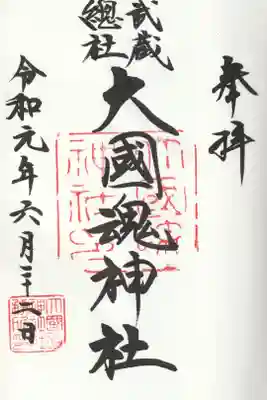 奉拝
武蔵
總社
大國魂神社
令和元年六月二十二日